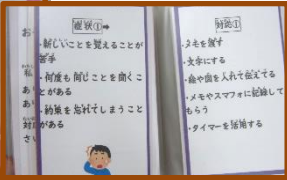 症状①➡
・新しいことを覚えることが
苦手
・何度も同じことを聞くこ
とがある
・約束を忘れてしまうこと
がある
対応①
・メモを渡す
・文字にする
・絵や図を入れて伝えてる
・メモやスマフォに記録して
もらう
・タイマーを活用する